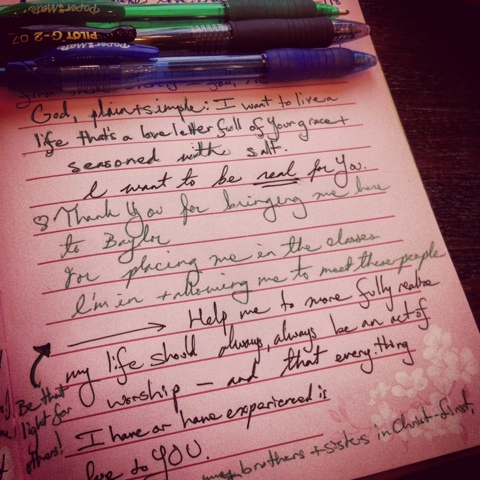 PaperMate
PILOT G-2 07
PaperMate
God, plain+simple: I want to live a
life that's a love letter full of Your grace +
seasoned with salt.
I want to be real for You.
Thank You for bringing me here
to Baylor
for placing me in the classes
I'm in + allowing me to meet these people
→ Help me to more fully realize
my life should always, always be an act of
worship — and that everything
I have or have experienced is
due to YOU.
brothers + sisters in Christ - first,
Be that
light for
others!